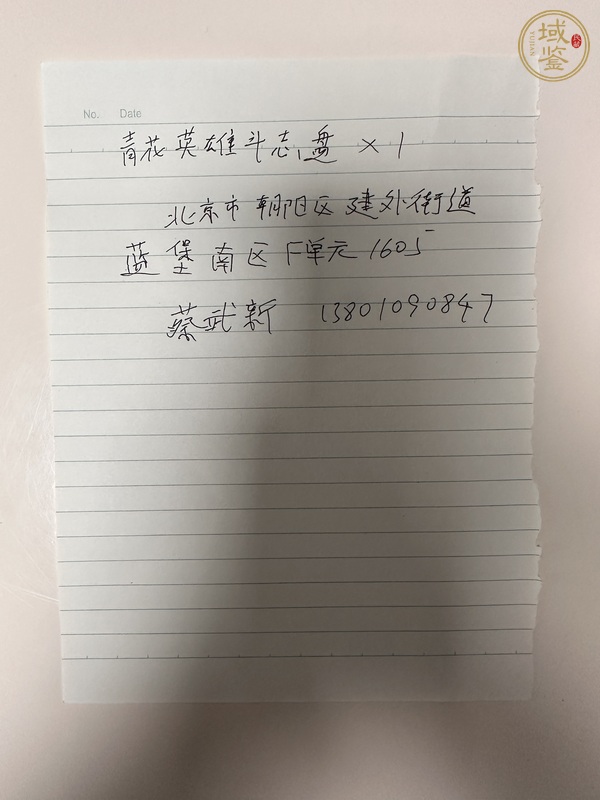 域鉴
YUJIAN
No. Date
青花英雄斗志盘 × 1
北京市朝阳区建外街道
蓝堡南区F单元1605
蔡武新 13801090847